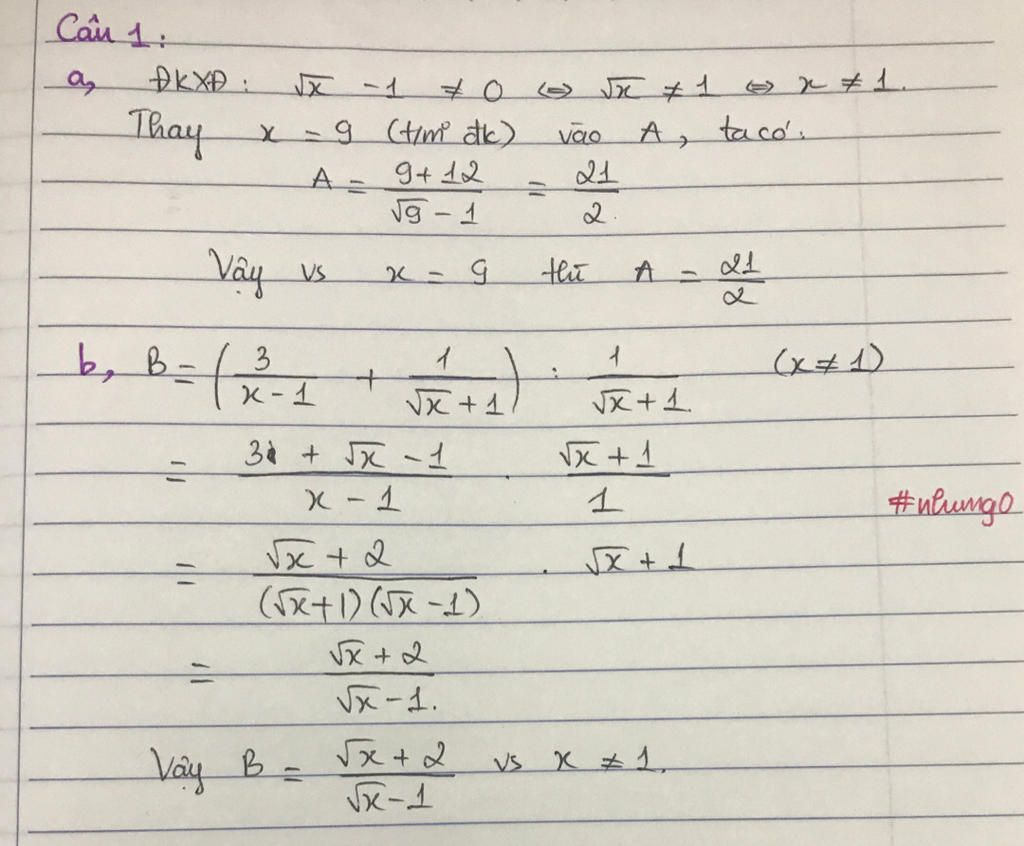 Câu 1:
a, ĐKXĐ: √x - 1 ≠ 0 ⇔ √x ≠ 1 ⇔ x ≠ 1.
Thay x = 9 (t/m đk) vào A, ta có:
A = (9+12)/(√9 - 1) = 21/2.
Vậy vs x = 9 thì A = 21/2
b, B = (3/(x-1) + 1/(√x+1)) : 1/(√x+1). (x ≠ 1)
= (3 + √x - 1)/(x - 1) . (√x+1)/1
#nhung0
= (√x + 2)/((√x+1)(√x-1)) . √x + 1
= (√x + 2)/(√x - 1).
Vậy B = (√x + 2)/(√x - 1) vs x ≠ 1.